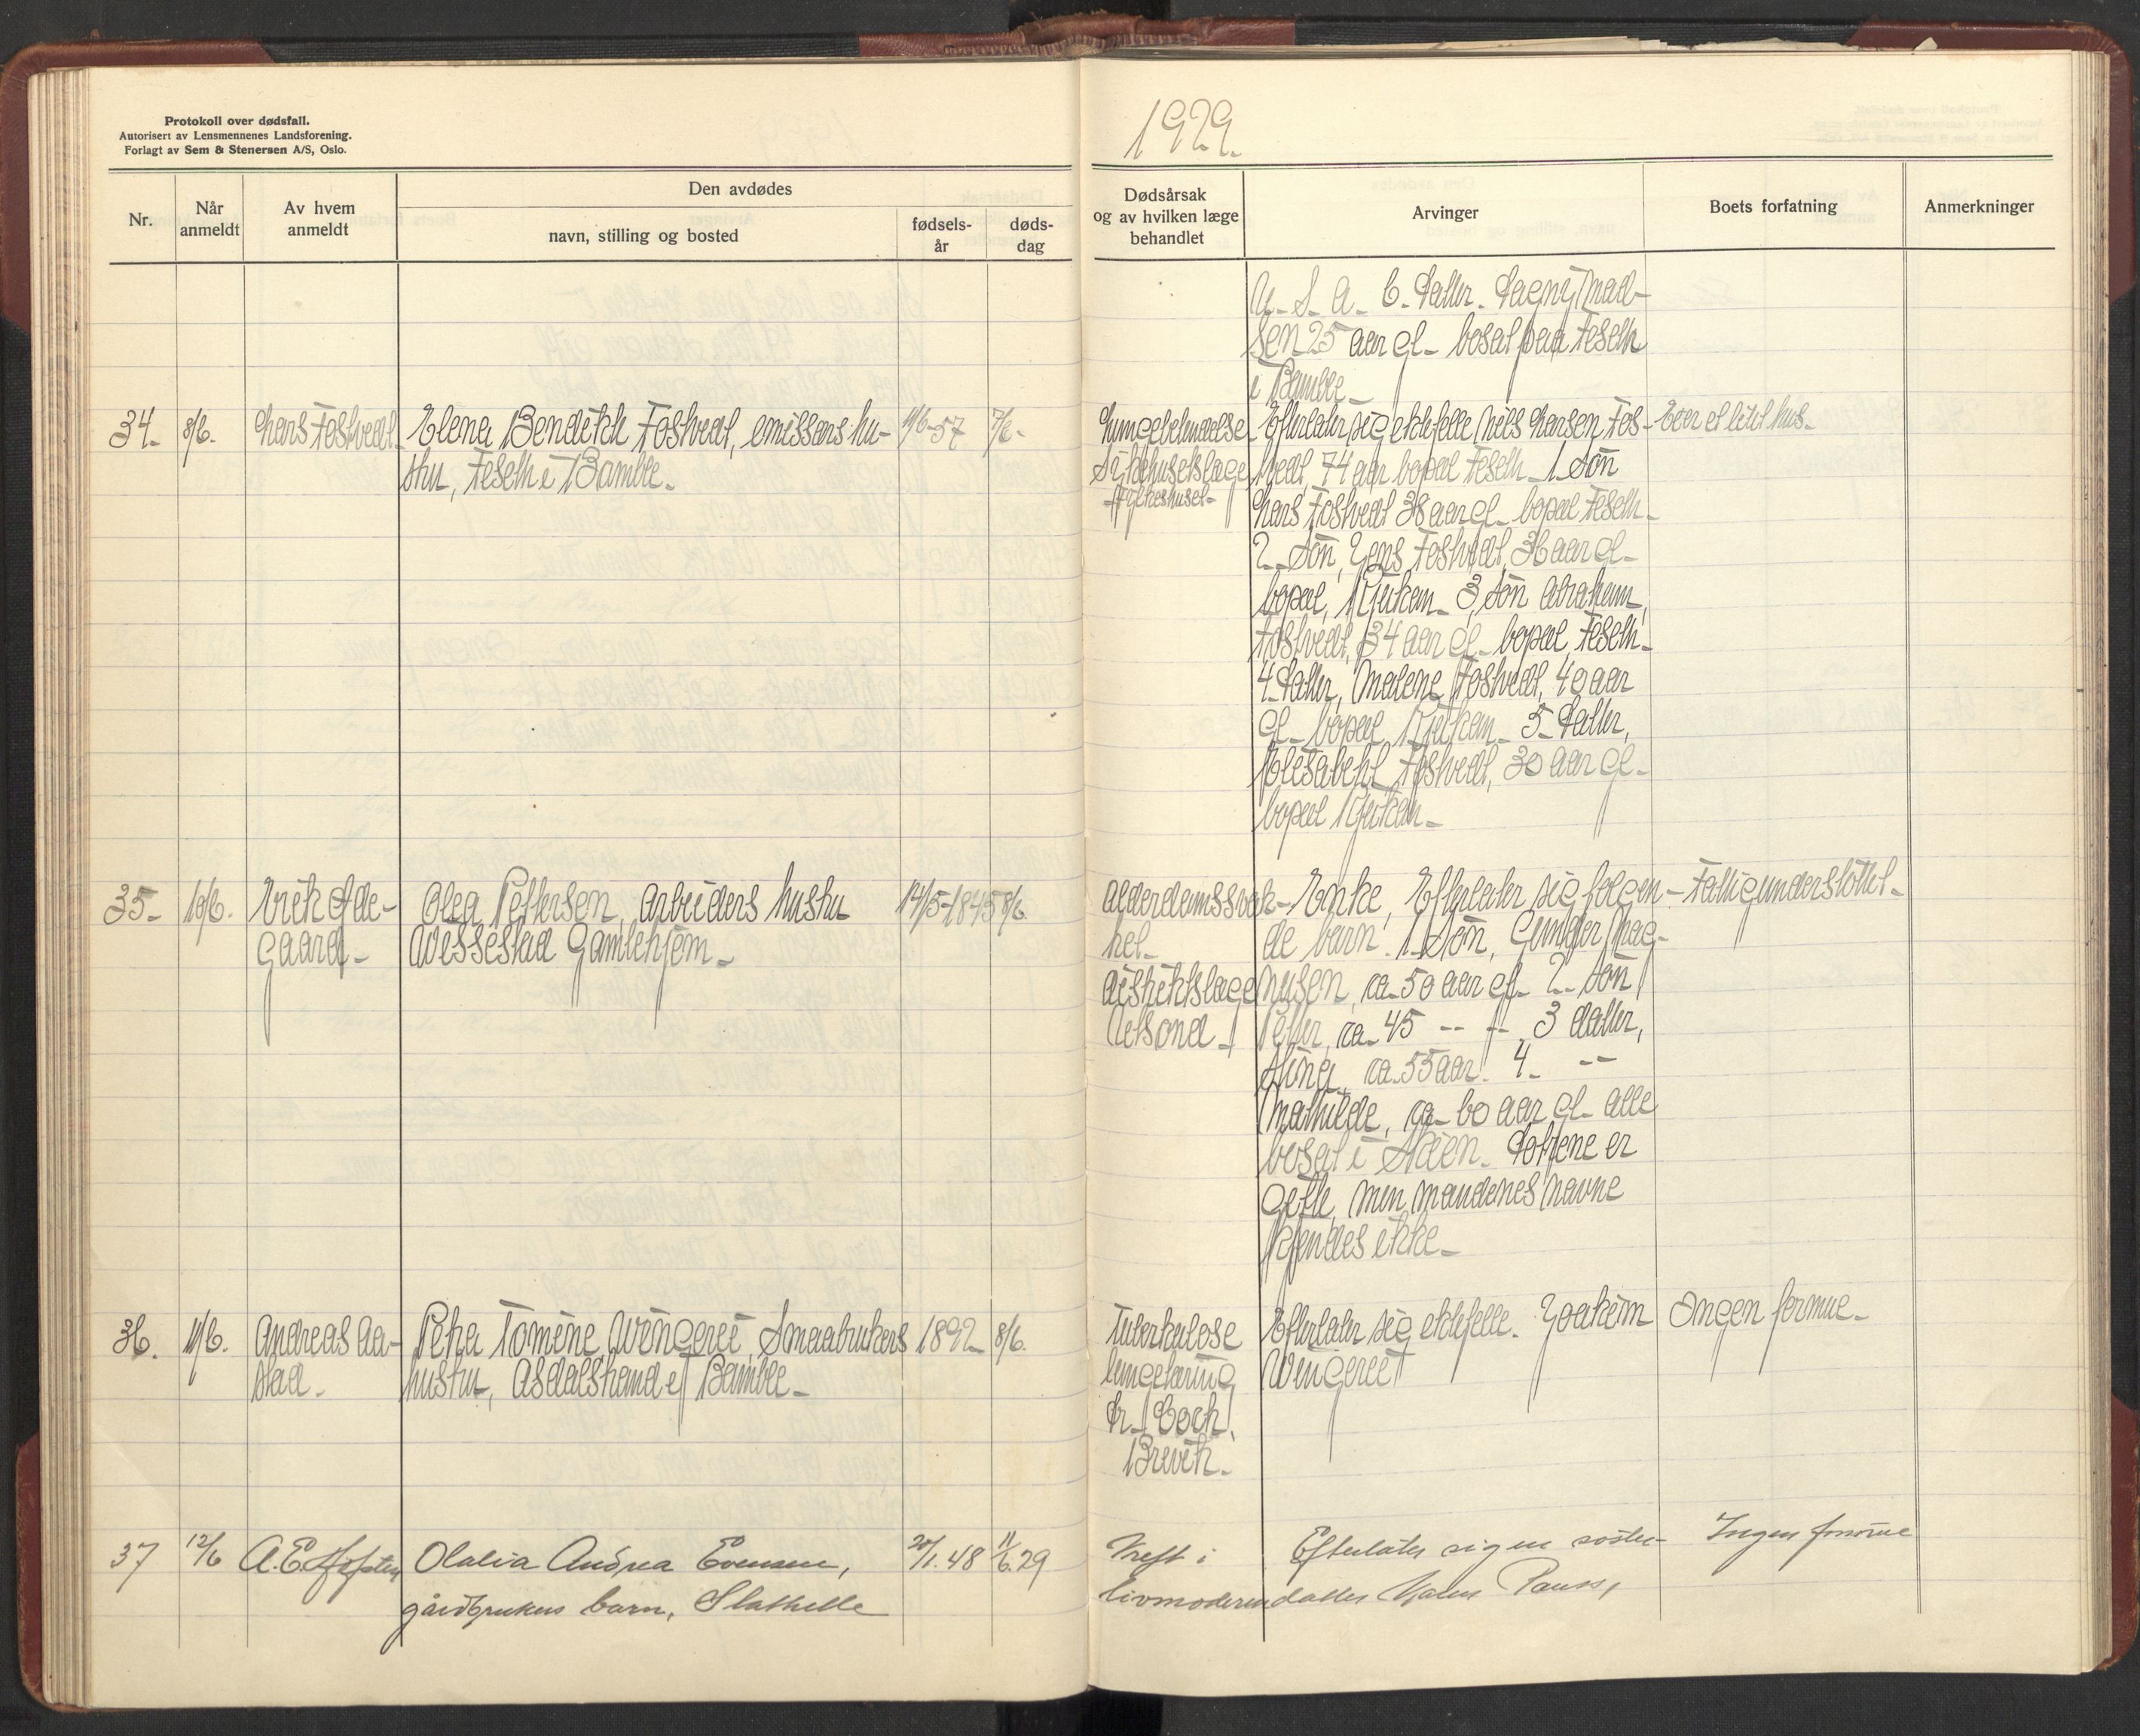 Protokoll over dødsfall.
Autorisert av Lensmennenes Landsforening.
Forlagt av Sem & Stenersen A/S, Oslo.
1929.
Nr.
Når
anmeldt
Av hvem
anmeldt
Den avdødes
navn, stilling og bosted
fødsels-
år
døds-
dag
Dødsårsak
og av hvilken læge
behandlet
Arvinger
Boets forfatning
Anmerkninger
U. S. A. 6. Datter. Dagny Mad-
sen 25 aar gl. bosat paa Feseth
i Bamble.
34. 8/6. Lars Fostvedt.
Elena Bendikte Fostvedt, emissærs hu-
stru, Feseth i Bamble.
11/6-57 7/6.
Lungebetændelse.
Sykehuselæge
Folkeshuset.
Efterlater sig ektefelle Nils Larsen Fos-
tvedt, 74 aar bopæl Feseth. 1. Søn
Lars Fostvedt 38 aar gl. bopæl Feseth.
2. Søn, Jens Fostvedt, 36 aar gl.
bopæl, Rjukan. 3, Søn Abraham,
Fostvedt, 34 aar gl. bopæl, Feseth.
4. Datter, Malene Fostvedt, 40 aar
gl. bopæl Rjukan. 5. Datter,
Elisabeht Fostvedt, 30 aar gl.
bopæl Rjukan.
Eier et litet hus.
35. 10/6. Erik Øde-
gaard.
Olea Pettersen, Arbeiders hustru
Vessestad Gamlehjem.
14/5-1845 8/6.
Alderdomssvak-
het.
Distriktslæge
Enke, Efterlater sig følgen-
de barn. 1. Søn, Gunder Mag-
nusen, ca. 50 aar gl. 2. Søn
Petter, ca. 45 -- -- 3 datter,
Stina, ca. 55 aar. 4. --
Mathilde, ca. 60 aar gl. alle
bosat i Skien. Døtrene er
gifte, men mandenes navne
kjendes ikke.
Fattigunderstøttet.
36. 11/6. Andreas Aa-
stad.
Petra Tomine Vingerei, Smaabrukers
hustru, Asdalstrand i Bamble.
1892. 8/6.
Tuberkulose
lungetæring
Dr. Coch,
Brevik.
Efterlater sig ektefelle. Joakim
Vingerei
Ingen formue.
37 12/6 A. E.
Olalia Andrea Evensen,
gårdbrukers barn, Stathelle
20/1.48 11/6.29
Kreft i
livmoderen
Efterlater sig en søster-
datter Maren Pauss,
Ingen formue